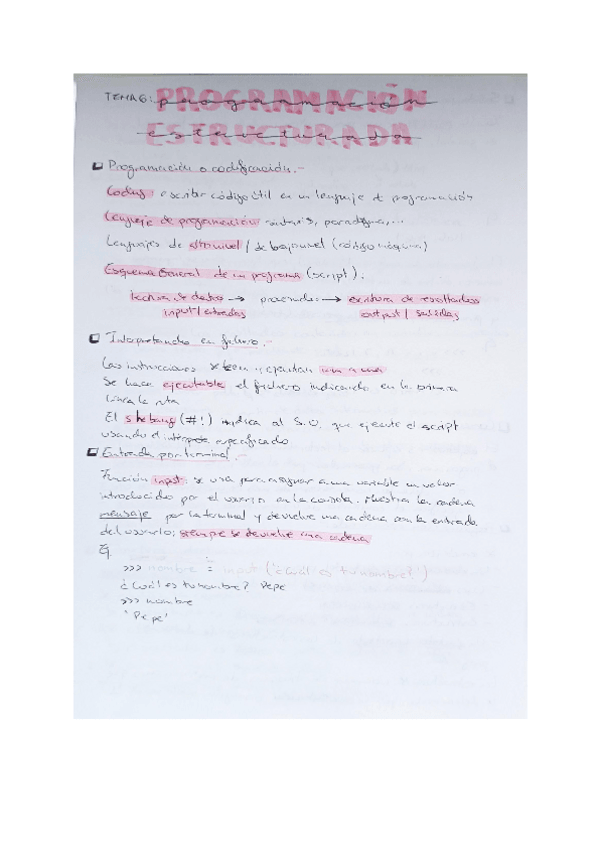 TEMA 6: PROGRAMACIÓN
ESTRUCTURADA
Programación o codificación.-
Coding: escribir código útil en un lenguaje de programación
Lenguaje de programación: sintaxis, paradigma,...
Lenguajes de alto nivel / de bajo nivel (código máquina)
Esquema General de un programa (script):
lectura de datos → procesado → escritura de resultados
input / entradas output / salidas
Interpretando en fichero.-
Las instrucciones se leen y ejecutan una a una
Se hace ejecutable el fichero indicando en la primera
línea la ruta
El shebang (#!) indica al S.O. que ejecute el script
usando el intérprete especificado
Entrada por terminal.-
Función input: se usa para asignar a una variable un valor
introducido por el usuario en la consola. Muestra la cadena
mensaje por la terminal y devuelve una cadena con la entrada
del usuario; siempre se devuelve una cadena
Ej
>>> nombre = input ('¿Cuál es tu nombre? ')
¿Cuál es tu nombre? Pepe
>>> nombre
'Pepe'